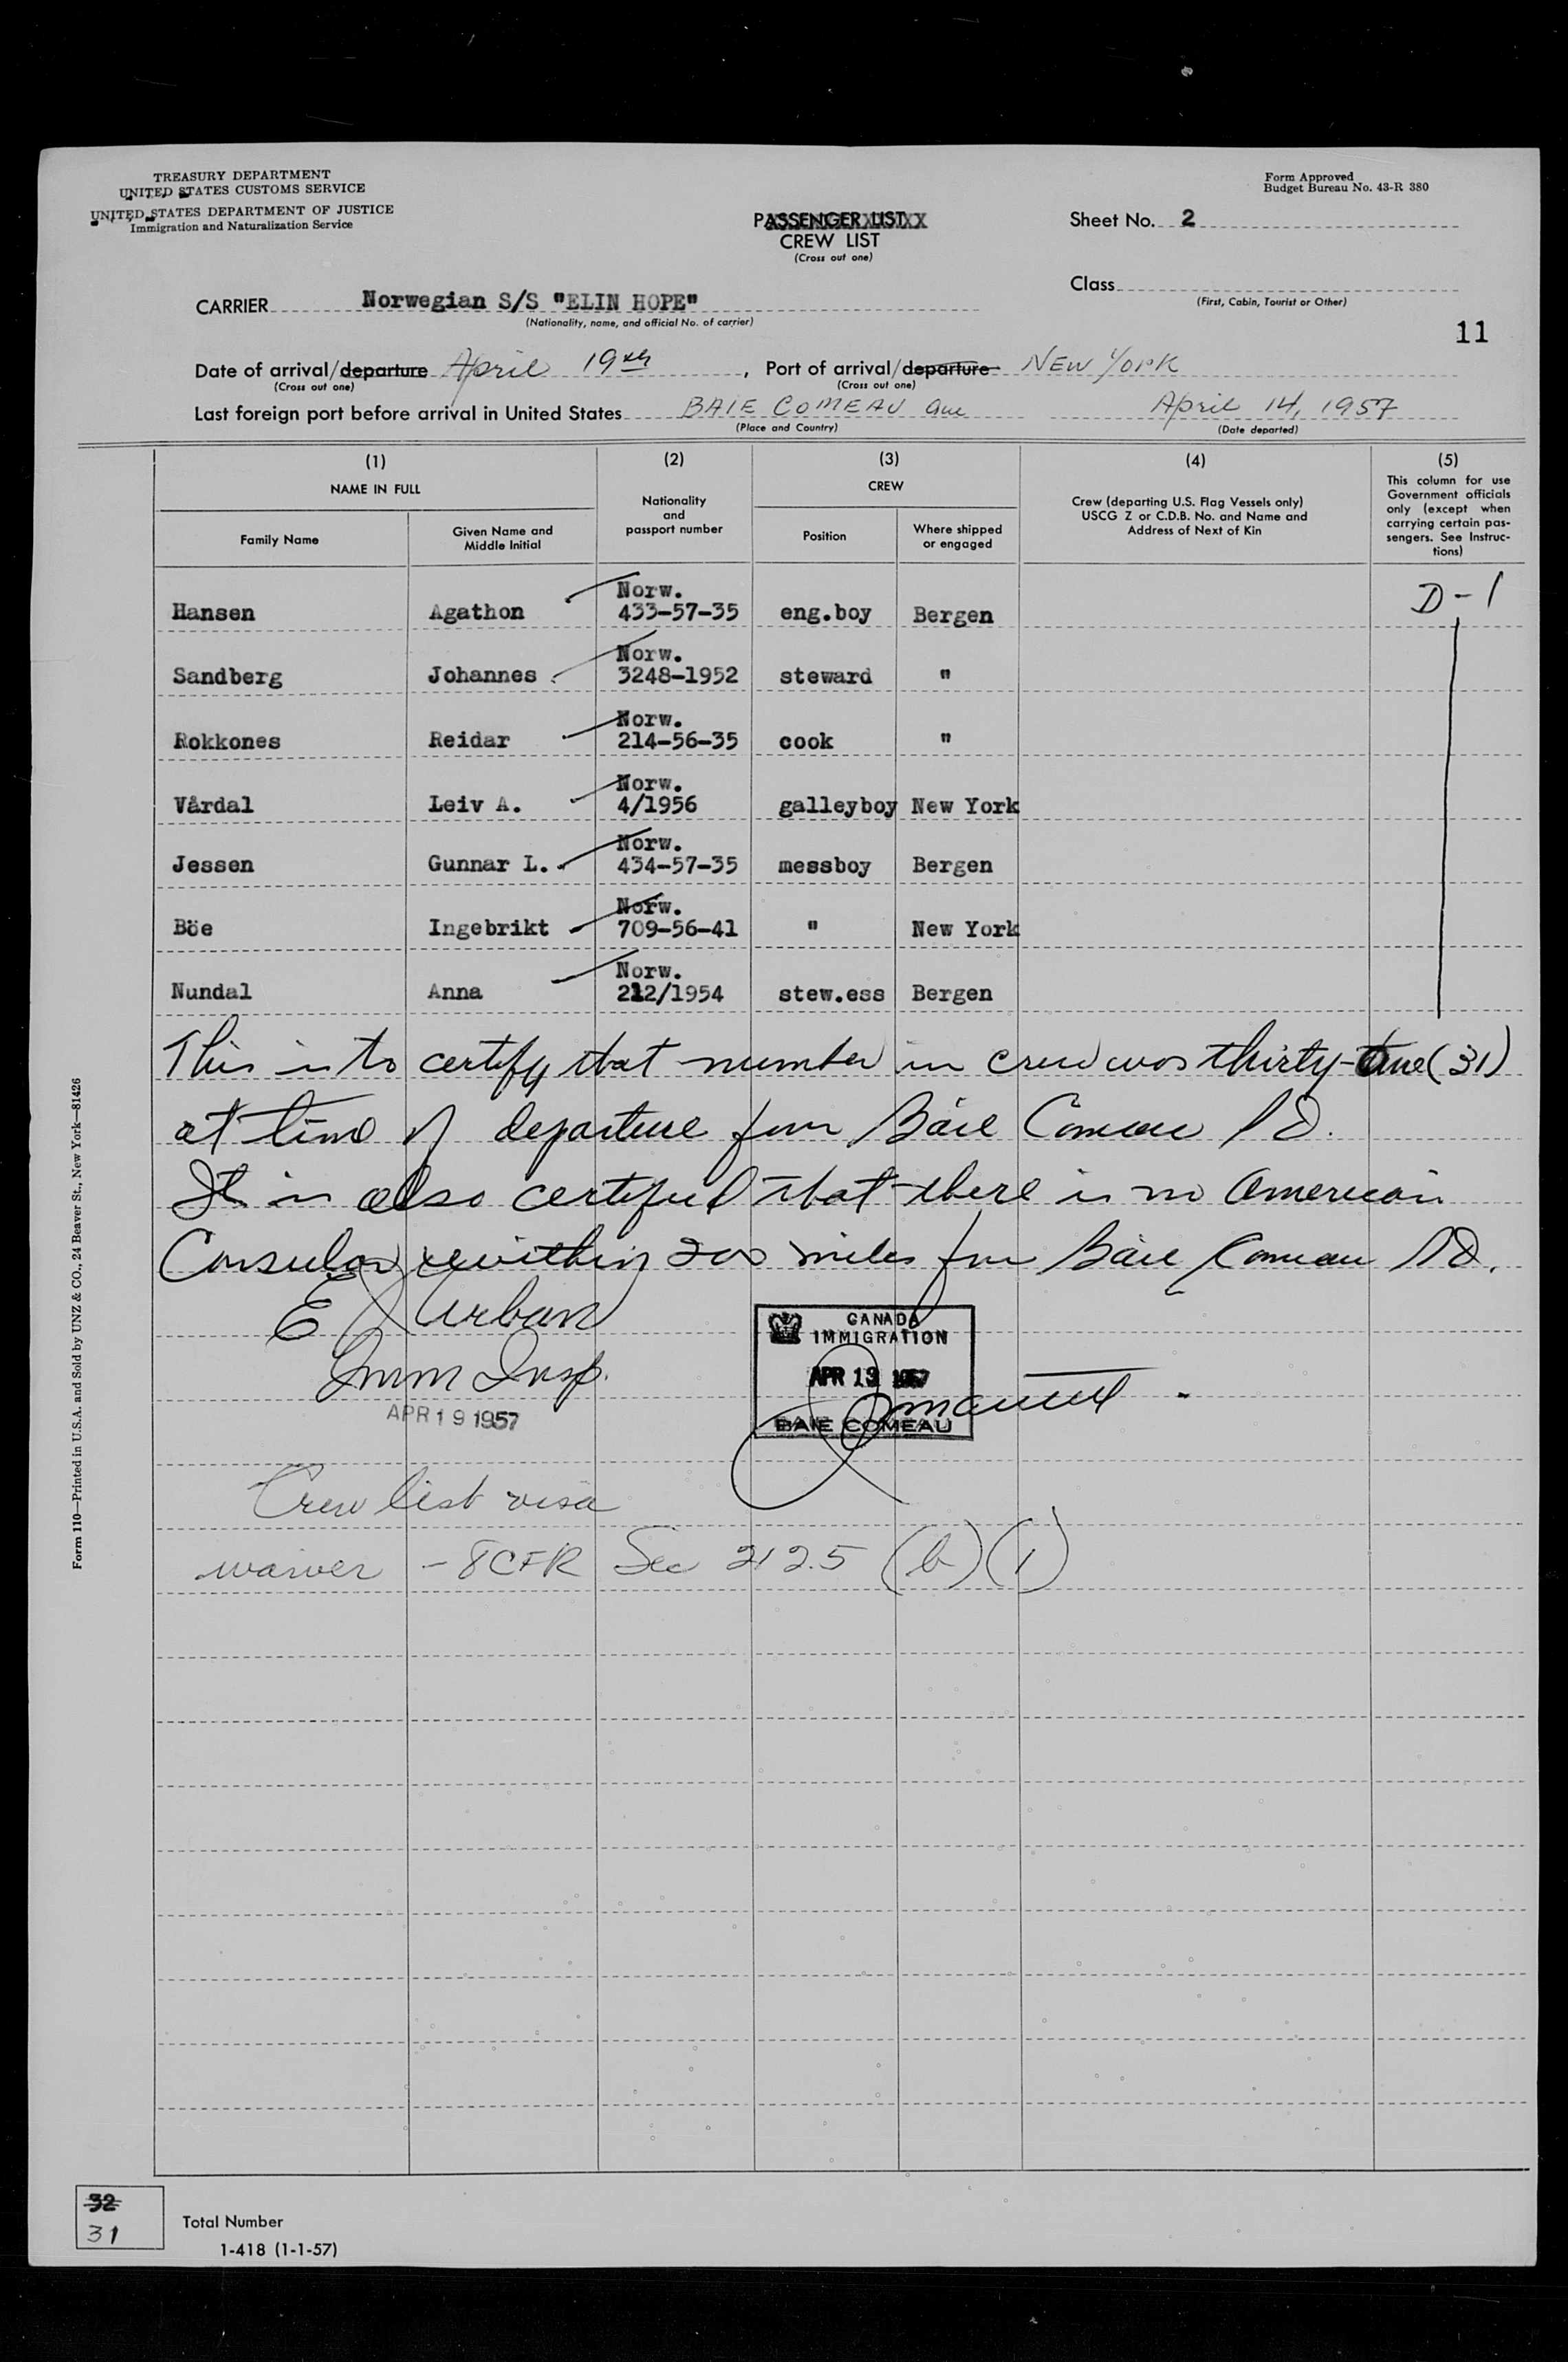 TREASURY DEPARTMENT
UNITED STATES CUSTOMS SERVICE
UNITED STATES DEPARTMENT OF JUSTICE
Immigration and Naturalization Service
Form Approved
Budget Bureau No. 43-R 380
PASSENGER LIST
CREW LIST
(Cross out one)
Sheet No. 2
Class
(First, Cabin, Tourist or Other)
CARRIER Norwegian S/S "ELIN HOPE"
(Nationality, name, and official No. of carrier)
11
Date of arrival/departure April 19th, Port of arrival/departure NEW YORK
(Cross out one) (Cross out one)
Last foreign port before arrival in United States BAIE COMEAU Que April 14, 1957
(Place and Country) (Date departed)
(1) (2) (3) (4) (5)
NAME IN FULL
Family Name
Given Name and
Middle Initial
Nationality
and
passport number
CREW
Position
Where shipped
or engaged
Crew (departing U.S. Flag Vessels only)
USCG Z or C.D.B. No. and Name and
Address of Next of Kin
This column for use
Government officials
only (except when
carrying certain pas-
sengers. See Instruc-
tions)
Norw.
Hansen Agathon 433-57-35 eng.boy Bergen D-1
Norw.
Sandberg Johannes 3248-1952 steward "
Norw.
Rokkones Reidar 214-56-35 cook "
Norw.
Vårdal Leiv A. 4/1956 galleyboy New York
Norw.
Jessen Gunnar L. 434-57-35 messboy Bergen
Norw.
Böe Ingebrikt 709-56-41 " New York
Norw.
Nundal Anna 212/1954 stew.ess Bergen
This is to certify that number in crew was thirty-one (31)
at time of departure from Baie Comeau P.Q.
It is also certified that there is no American
Consular within 200 miles from Baie Comeau P.Q.
E Urban
Imm Insp.
APR 19 1957
CANADA
IMMIGRATION
APR 13 1957
BAIE COMEAU
Crew list visa
waiver - 8 CFR Sec 212.5 (b)(1)
Form 110—Printed in U.S.A. and Sold by UNZ & CO., 24 Beaver St., New York—81426
32
31
Total Number
1-418 (1-1-57)